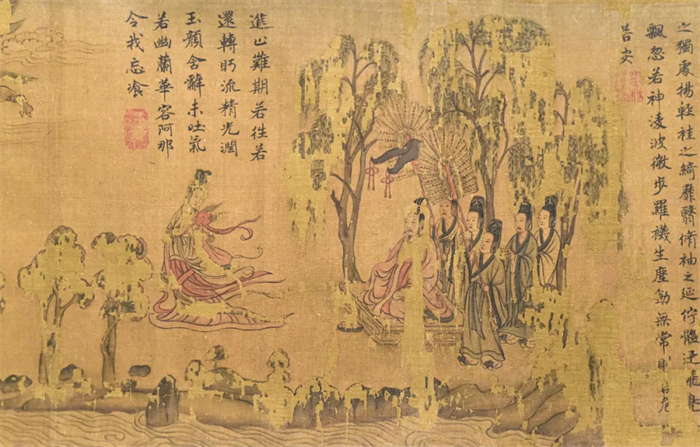 之獨處揚輕袿之綺靡翳脩袖之延佇體迅飛
飄忽若神凌波微步羅襪生塵動無常則若危
若安
進止難期若往若
還轉眄流精光潤
玉顏含辭未吐氣
若幽蘭華容阿那
令我忘飡